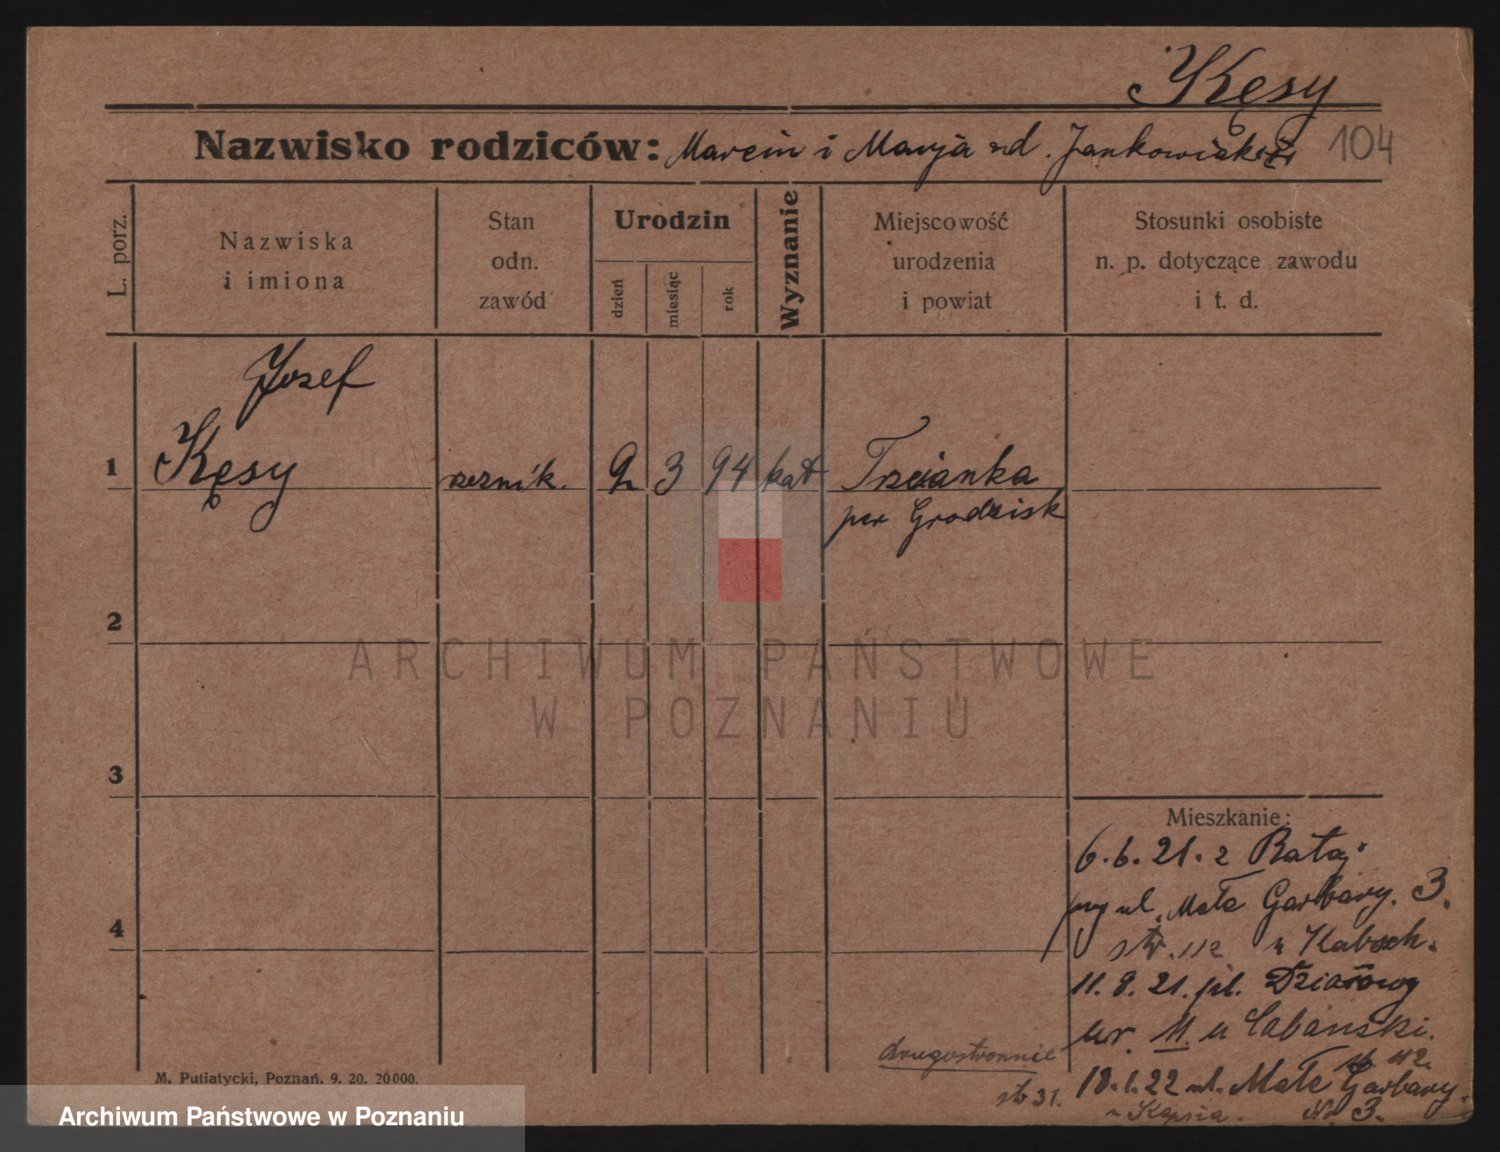 Kęsy
Nazwisko rodziców: Marcin i Marya zd. Jankowiak
104
L. porz.
Nazwiska
i imiona
Stan
odn.
zawód
Urodzin
dzień
miesiąc
rok
Wyznanie
Miejscowość
urodzenia
i powiat
Stosunki osobiste
n. p. dotyczące zawodu
i t. d.
Józef
1 Kęsy rzeźnik. 9 3 94 kat Trzcianka
pow Grodzisk
2
3
4
ARCHIWUM PAŃSTWOWE
W POZNANIU
Mieszkanie:
6.6.21. z Rataj
przy ul. Małe Garbary. 3.
str. 112 u
11.8.21. pl. Działowy
nr. 11. u Łabański.
18.1.22 ul. Małe Garbary.
No 3.
drugostronnie
str 31.
M. Putiatycki, Poznań. 9. 20. 20000.
Archiwum Państwowe w Poznaniu